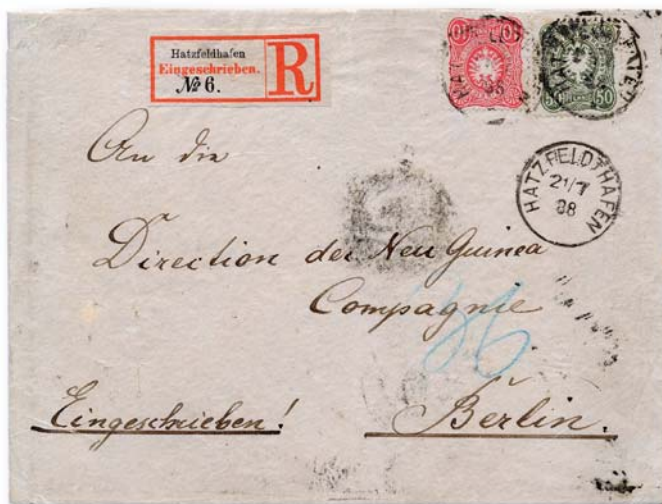 Hatzfeldhafen
Eingeschrieben.
№ 6.
R
10
50 50
HATZFELDTHAFEN
21/7
88
An die
Direction der Neu Guinea
Compagnie
Eingeschrieben!
Berlin.